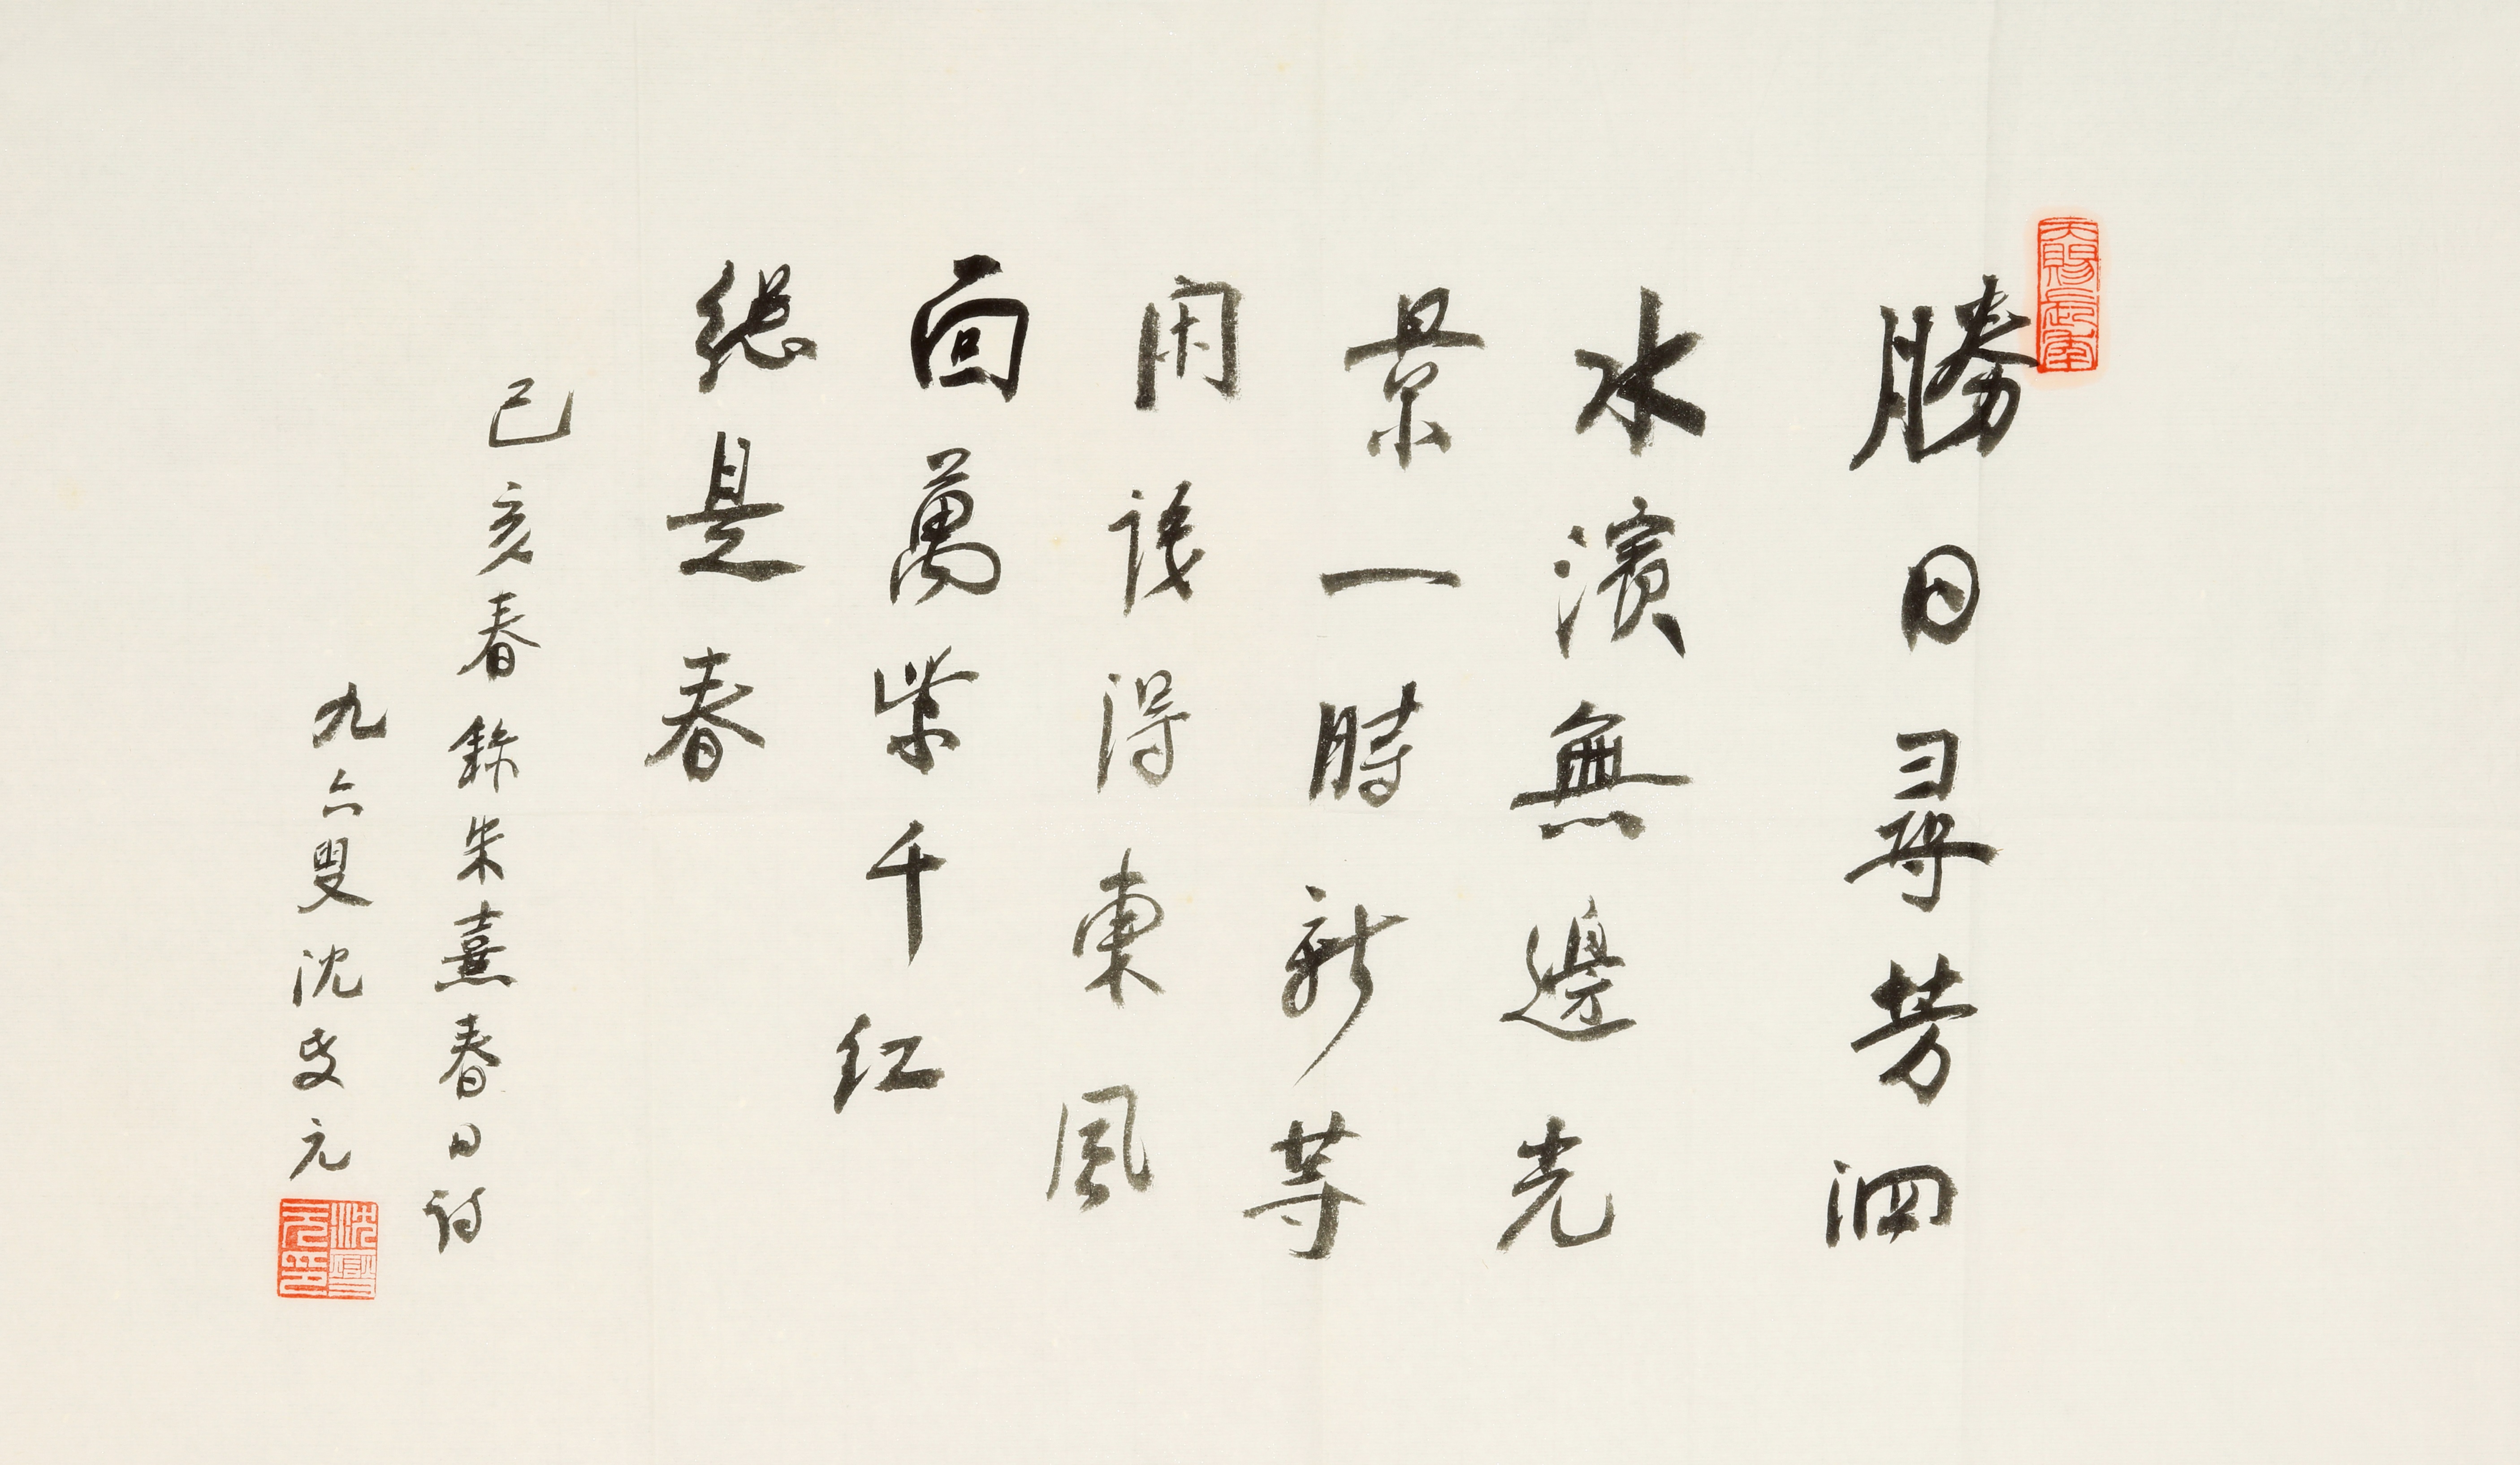 勝日尋芳泗
水濱無邊光
景一時新等
閑識得東風
面萬紫千紅
總是春
己亥春錄朱熹春日詩
九六叟沈燮元
沈燮元印